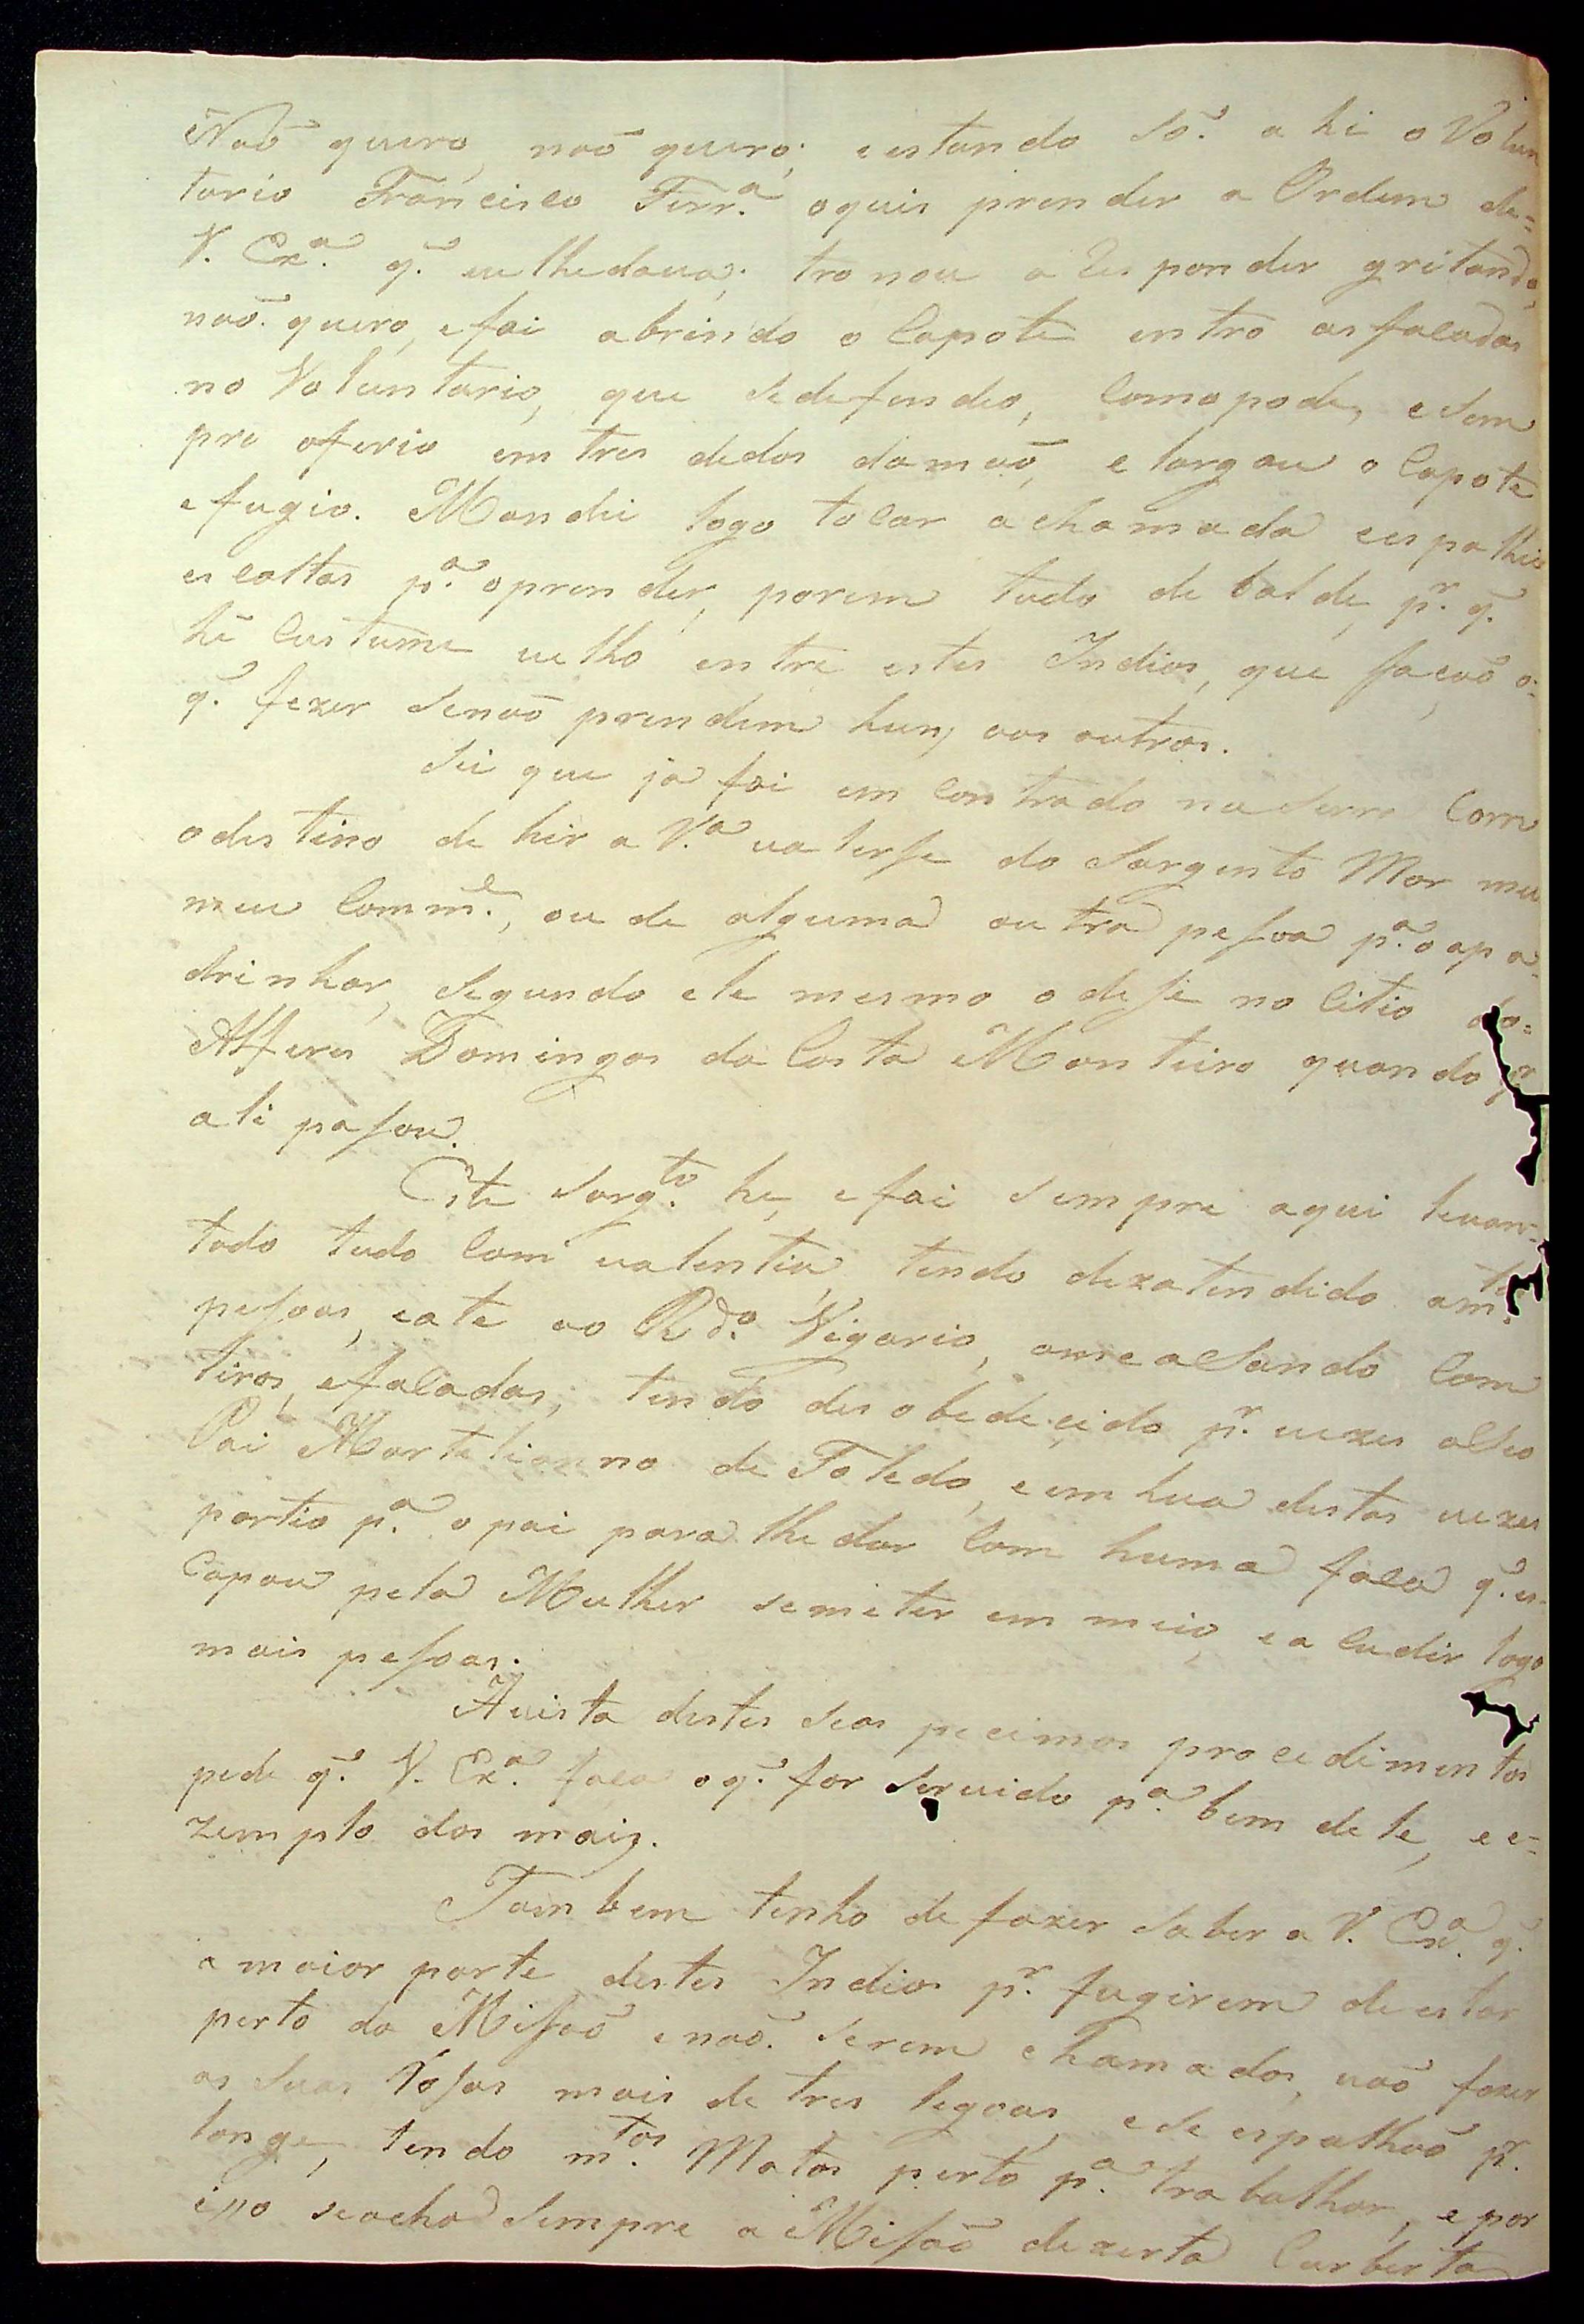 Naõ quero, naõ quero; e estando Só. a hi o Volun
tario Francisco Ferr.ª oquis prender a Ordem de=
V. Exª. q̃. eu lhedava; tronou a Responder gritando,
naõ. quero, efoi abrindo o Capote entrò as facadas
no Voluntario, que sedefendeo, Comopode, e Sem
pre oferio em tres dedos damaõ, e largou o Capote
efugio. Mandei logo tocar achamada e espalhei
escoltas p.ª oprender, porem tudo de balde, p.r q̃.
hé Custume velho entre estes Indios, que façaõ o=
q̃. fezer senaõ prendem huns aos outros.
Sei que ja foi em Contrado na Serra Com
odestino de hir a V.ª valerse do Sargento Mor meu
meu Comm.e, ou de alguma outra pesoa p.ª o apa=
drinhar, segundo ele mesmo o dese no Citio do=
Alferes Domingos da Costa Monteiro quando p.r
ali pasou.
Este Sarg.to he, e foi sempre aqui levan=
tado tudo Com valentia, tendo dezatendido am.tas
pesoas, eate ao R.do Vigario, amealsando Com
tiros, efacadas; tendo desobedecido p.r vezes aSeo
Pai Martelianno de Toledo, e em hua destas vezes
partio p.ª o pai para lhe dar Com huma faca q̃. es=
Capou pela Mulher semeter em meio, e a Cudir logo
mais pesoas.
Avista destes seos pecimos procedimentos
pede q̃. V. Exª. faca oq̃. for servido p.ª bem dele, e e=
zemplo dos mais.
Tambem tenho de fazer saber a V. Exª. q̃.
a maior parte destes Indios p.r fugirem de estar
perto da Misaõ enaõ. serem chamados, vaõ fazer
as suas Rosas mais de tres legoas, ese espalhaõ p.r
longe, tendo m.tos Matos perto p.ª trabalhar, e por
isso seacha sempre a Misaõ dezerta